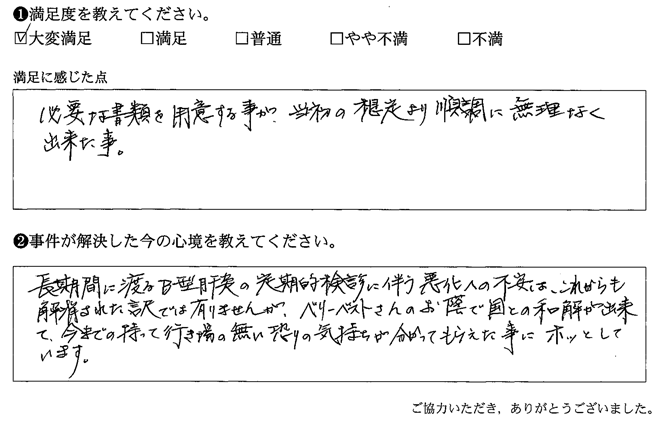 ❶満足度を教えてください。
☑大変満足 □満足 □普通 □やや不満 □不満
満足に感じた点
必要な書類を用意する事が、当初の想定より順調に無理なく
出来た事。
❷事件が解決した今の心境を教えてください。
長期間に渡るB型肝炎の定期的検診に伴う悪化への不安は、これからも
解消された訳では有りませんが、ベリーベストさんのお陰で国との和解が出来
て、今までの持って行き場の無い怒りの気持ちが分かってもらえた事にホッとして
います。
ご協力いただき、ありがとうございました。